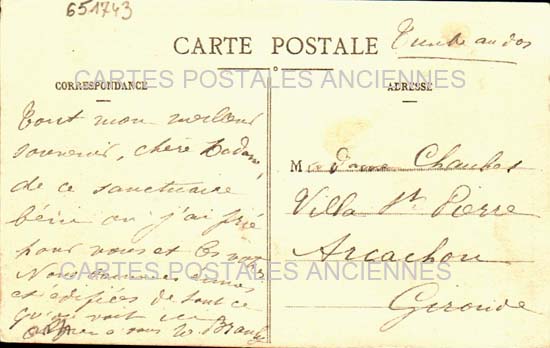 651743
CARTE POSTALE
Timbre au dos
CARTES POSTALES ANCIENNES
CORRESPONDANCE
ADRESSE
Tout mon meilleur
souvenir, chère Madame,
de ce sanctuaire
béni où j'ai prié
pour vous et les vôtres
Nous sommes émues
et édifiées de tout ce
qu'on voit ici
à vous
Madame Chaubos
Villa St Pierre
Arcachon
Gironde
CARTES POSTALES ANCIENNES